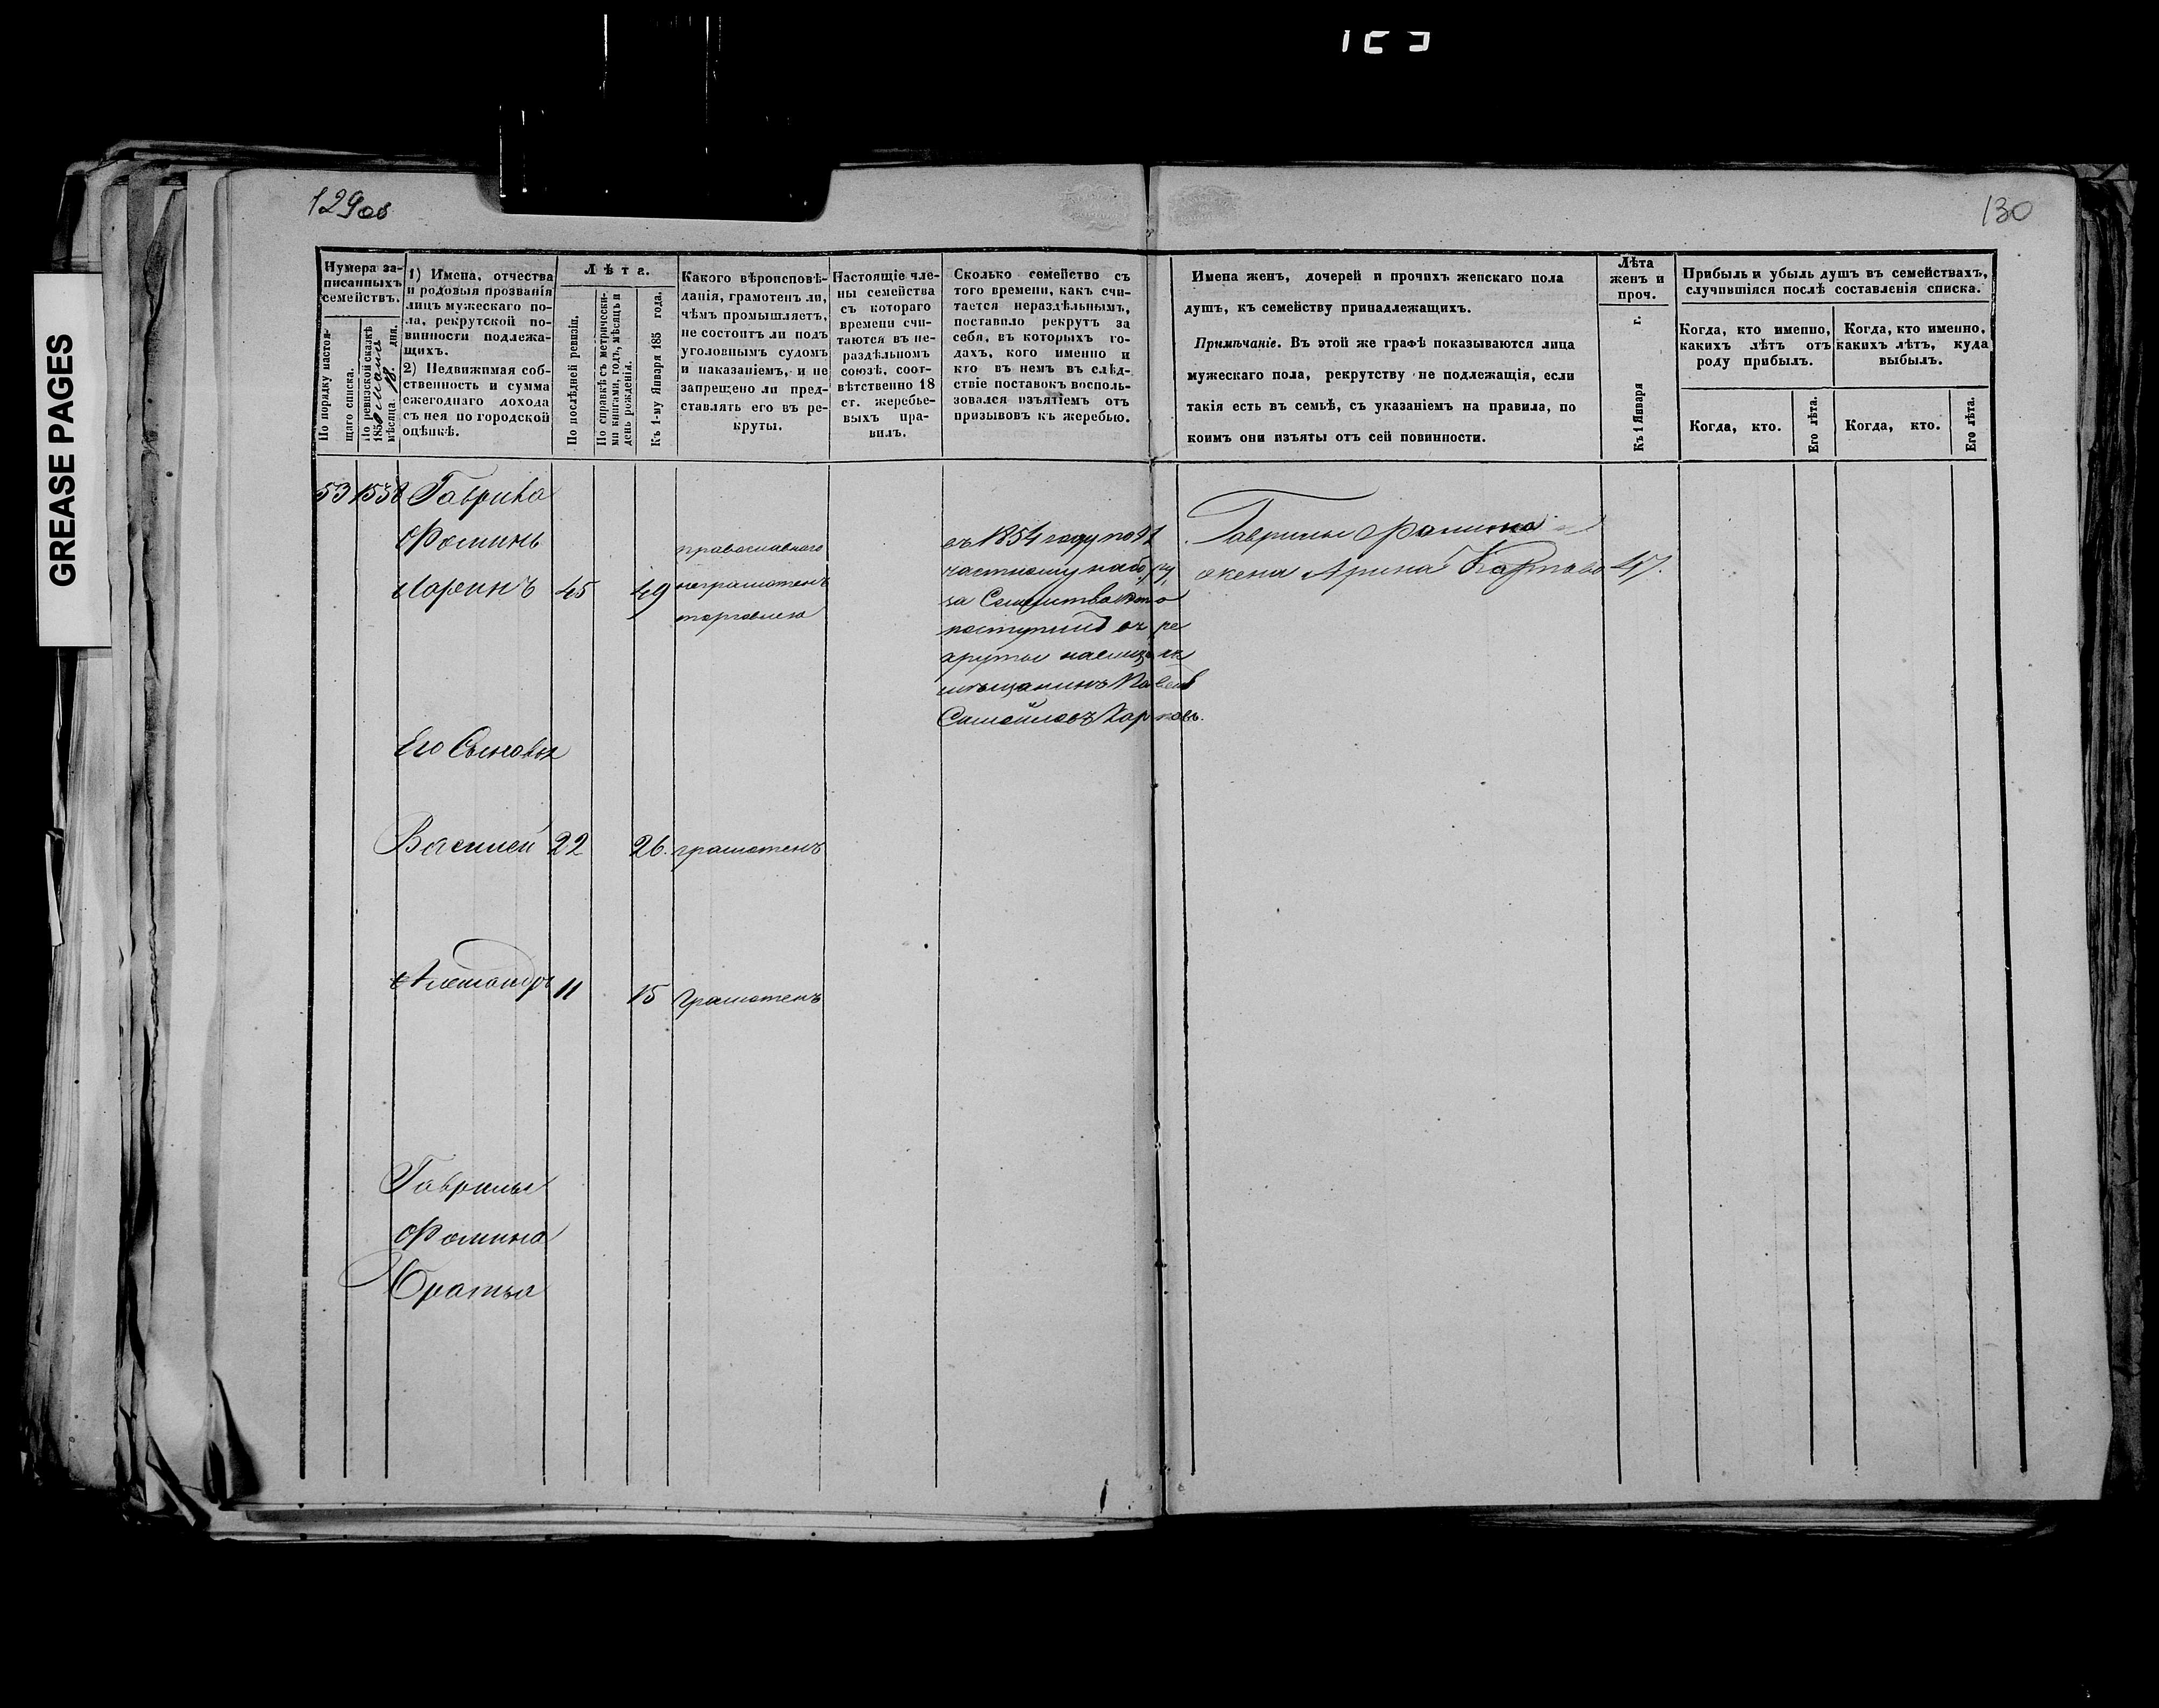 129об
130
GREASE PAGES
Нумера за-
писанныхъ
семействъ.
По порядку настоя-
щаго списка.
По ревизской сказкѣ
185
мѣсяца 18. дня.
1) Имена, отчества
и родовыя прозванія
лицъ мужескаго по-
ла, рекрутской по-
винности подлежа-
щихъ.
2) Недвижимая соб-
ственность и сумма
ежегоднаго дохода
съ нея по городской
оцѣнкѣ.
Лѣта.
По послѣдней ревизіи.
По справкѣ съ метрически-
ми книгами, годъ, мѣсяцъ и
день рожденія.
Къ 1-му Января 185 года.
Какого вѣроисповѣ-
данія, грамотенъ ли,
чѣмъ промышляетъ,
не состоитъ ли подъ
уголовнымъ судомъ
и наказаніемъ, и не
запрещено ли пред-
ставлять его въ ре-
круты.
Настоящіе чле-
ны семейства
съ котораго
времени счи-
таются въ не-
раздѣльномъ
союзѣ, соот-
вѣтственно 18
ст. жеребье-
выхъ пра-
вилъ.
Сколько семейство съ
того времени, какъ счи-
тается нераздѣльнымъ,
поставило рекрутъ за
себя, въ которыхъ го-
дахъ, кого именно и
кто въ немъ въ слѣд-
ствіе поставокъ восполь-
зовался изъятіемъ отъ
призывовъ къ жеребью.
Имена женъ, дочерей и прочихъ женскаго пола
душъ, къ семейству принадлежащихъ.
Примѣчаніе. Въ этой же графѣ показываются лица
мужескаго пола, рекрутству не подлежащія, если
такія есть въ семьѣ, съ указаніемъ на правила, по
коимъ они изъяты отъ сей повинности.
Лѣта
женъ и
проч.
Къ 1 Января г.
Прибыль и убыль душъ въ семействахъ,
случившіяся послѣ составленія списка.
Когда, кто именно,
какихъ лѣтъ отъ
роду прибылъ.
Когда, кто именно,
какихъ лѣтъ, куда
выбылъ.
Когда, кто.
Его лѣта.
Когда, кто.
Его лѣта.
53 1558 Гаврила
Фоминъ
Ларинъ 45 49
православнаго
неграмотенъ
торговлею
въ 1854 году по 11
частному набору,
за Семейство
поступилъ въ ре
круты
мѣщанинъ Павелъ
Самойловъ Карповъ.
Гаврилы Фомина
жена Арина Карпова 47.
Его Сыновья
Василей 22 26. грамотенъ
Александръ 11 15 Грамотенъ
Гаврилы
Фомина
Братья